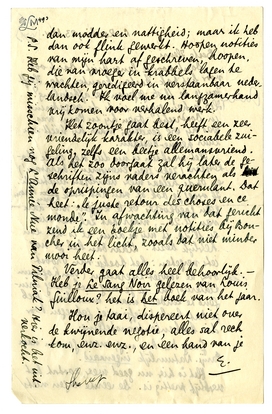 dan modder en nattigheid; maar ik heb
dan ook flink gewerkt. Hoopen notities
van mijn hart af geschreven; hoopen,
die van vroeger in krabbels lagen te
wachten geredigeerd in verstaanbaar neder-
landsch. Ik voel me nu langzamerhand
vrij komen voor verhalend werk.
Het zoontje gaat best, heeft een zeer
vriendelijk karakter, is een sociabele zui-
geling, zelfs een beetje allemansvriend.
Als het zoo doorgaat zal hij later de ge-
schriften zijns vaders verachten als
de oprispingen van een querulant. Dat
heet: "le juste retour des choses en ce
monde". In afwachting van dat gericht
zend ik een boekje met notities bij Bou-
cher in het licht, zooals dat niet minder
mooi heet.
Verder gaat alles heel behoorlijk. —
Heb je Le Sang Noir gelezen van Louis
Guilloux? het is het boek van het jaar.
Hou je taai, dispereert niet over
de kwijnende negotie, alles sal rech
kom, enz. enz., en een hand van je
E.
P.S. Heb je misschien nog L'Annie
van Tilniak? Hier is het uit-
verkocht.